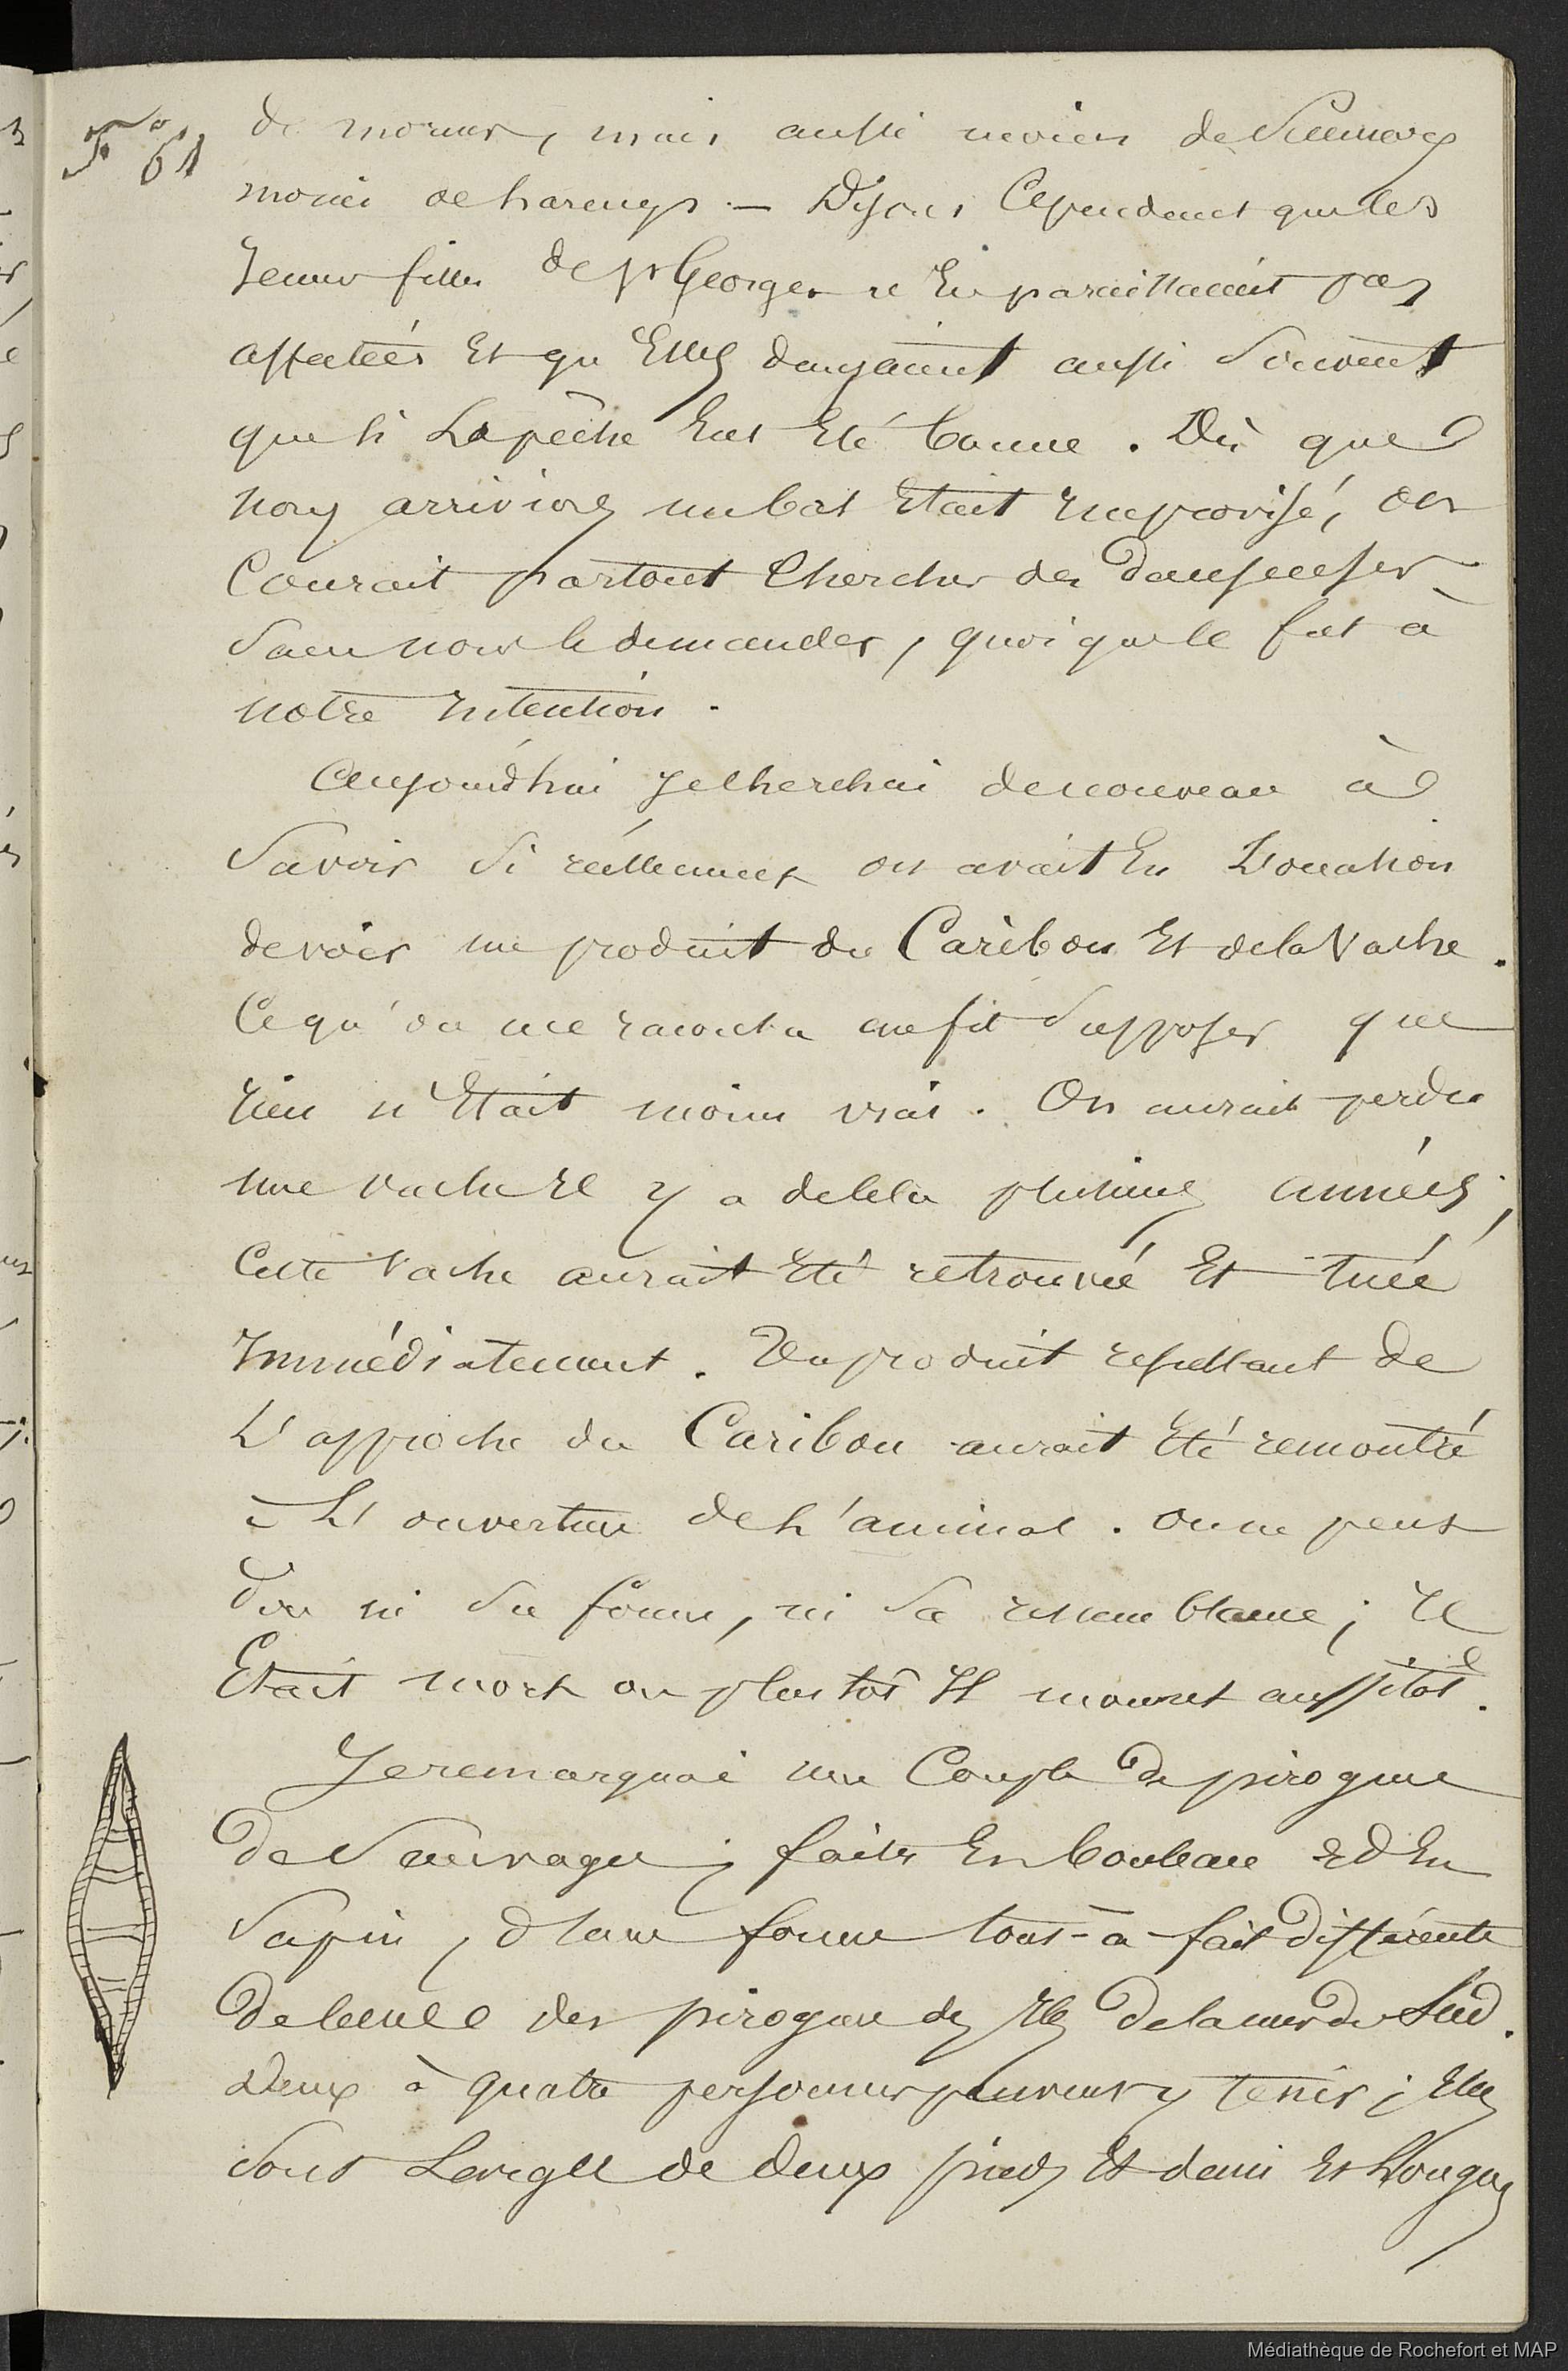 F° 61
de morues, mais aussi moins de
moins de harengs. — Disons Cependant que les
Jeunes filles de St Georges n'En paraissaient pas
affectées Et qu'Elles dansaient aussi Souvent
que si La pêche Eut Eté bonne. Dès que
nous arrivions un bal Etait Improvisé, on
Courait partout Chercher des danseuses
Sans nous le demander, quoique ce fut à
notre Intention.
Aujourd'hui Je cherchai de nouveau à
Savoir Si réellement on avait Eu L'occation
de voir un produit du Caribou Et de la Vache.
Ce qu'on me raconta me fit Supposer que
rien n'Etait moins vrai. On aurait perdu
une vache Il y a de cela plusieurs années,
Cette Vache aurait Eté retrouvée Et tuée
Immédiatement. Un produit resultant de
L'approche du Caribou aurait Eté remontré
à L'ouverture de L'animal. On ne peut
dire ni Sa forme, ni Sa ressemblance; Il
Etait mort ou plustôt Il mourut aussitôt.
Je remarquai une Couple de pirogues
de Sauvages; faites En bouleau Et En
Sapin, d'une forme tout-à-fait différente
de celle des pirogues des Iles de la mer du Sud.
Deux à quatre personnes peuvent y tenir; Elles
Sont Larges de deux pieds Et demi Et Longues
Médiathèque de Rochefort et MAP